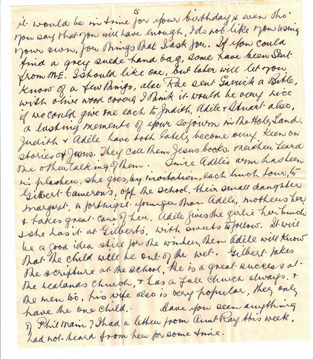 5
it would be in time for your birthday & even tho'
you say that you will have enough, I do not like you using
your own, for things that I ask you. If you could
find a grey suede hand bag, some have been sent
from M.E. I should like one, but later will let you
know of a few things, also Pike sent Garrick a Bible
with olive wood covers I think it would be very nice
if we could give one each to Judith, Adele & Stuart also,
a lasting memento of your sojourn in the Holy Land.
Judith & Adele have both lately become very keen on
stories of Jesus. They call them Jesus books. neither heard
the other talking of them. Since Adele's arm has been
in plaster, she goes by invitation, each lunch hour, to
Gilbert Cameron's, off the school, their small daughter
Margaret, a fortnight younger than Adele, mothers her
& takes great care of her. Adele gives the girlie her lunch
& she has it at Gilberts, with sweets to follow. It will
be a good idea still for the winter, then Adele will know
that the child will be out of the wet. Gilbert takes
the scripture at the school, he is a great success at
the Lealands church, & has a full church always, &
the men too, his wife also is very popular, they only
have the one child. Have you seen anything
of Phil Main? I had a letter from Aunt Kay this week,
had not heard from her for some time.